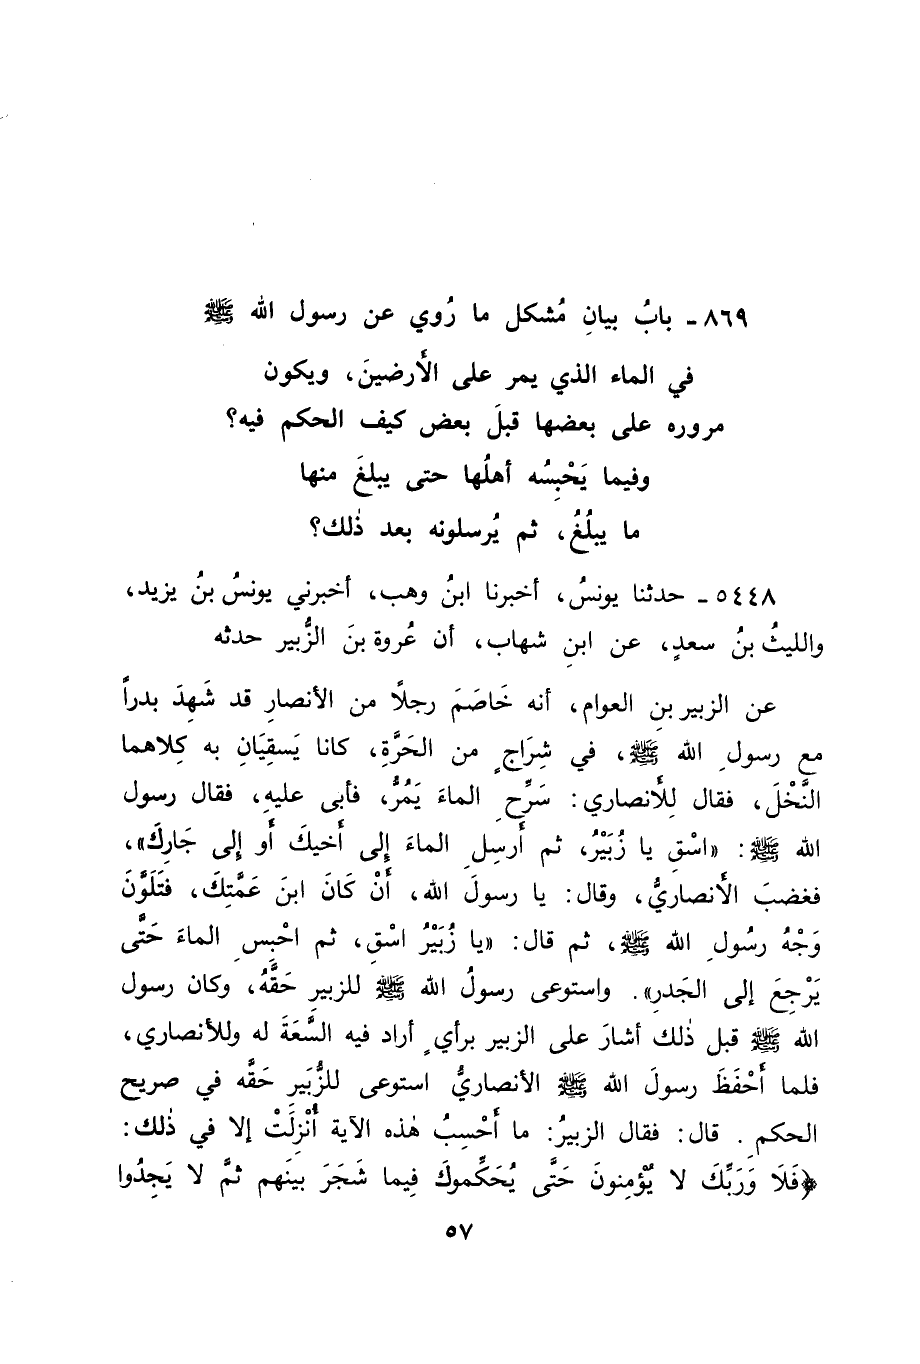 ٨٦٩ـ بابُ بيانِ مُشكل ما رُوي عن رسول الله ﷺ
في الماء الذي يمر على الأَرضينَ، ويكون
مروره على بعضها قبلَ بعض كيف الحكم فيه؟
وفيما يَحْبِسُه أهلُها حتى يبلغَ منها
ما يبلُغُ، ثم يُرسلونه بعد ذٰلك؟
٥٤٤٨ـ حدثنا يونسُ، أخبرنا ابنُ وهب، أخبرني يونسُ بنُ يزيد،
والليثُ بنُ سعدٍ، عن ابنِ شهاب، أن عُروة بنَ الزُّبير حدثه
عن الزبير بنِ العوام، أنه خَاصَمَ رجلاً من الأنصارِ قد شَهِدَ بدراً
مع رسولِ الله ﷺ، في شِرَاجٍ من الحَرَّةِ، كانا يَسقِيَانِ به كِلاهما
النَّخْلَ، فقال لِلأنصاري: سَرِّحِ الماءَ يَمُرُّ، فأبى عليهِ، فقال رسول
الله ﷺ: «اسْقِ يا زُبَيْرُ، ثم أَرسِلِ الماءَ إِلى أَخيكَ أَو إِلى جَارِكَ»،
فغضبَ الأَنصاريُّ، وقال: يا رسولَ الله، أَنْ كَانَ ابنَ عَمَّتِكَ، فَتَلَوَّنَ
وَجْهُ رسُولِ الله ﷺ، ثم قال: «يا زُبَيْرُ اسْقِ، ثم احْبِسِ الماءَ حَتَّى
يَرْجِعَ إلى الجَدرِ». واستوعى رسولُ الله ﷺ للزبيرِ حَقَّهُ، وكان رسول
الله ﷺ قبل ذٰلك أشارَ على الزبير برأيٍ أراد فيه السَّعَةَ له وللأنصاري،
فلما أَحْفَظَ رسولَ الله ﷺ الأنصاريُّ استوعى للزُّبَيرِ حَقَّه في صريح
الحكمِ. قال: فقال الزبيرُ: ما أَحْسِبُ هٰذه الآية أُنْزِلَتْ إلا في ذٰلك:
﴿فَلَا وَرَبِّكَ لا يُؤْمِنونَ حَتَّى يُحَكِّموكَ فِيما شَجَرَ بينَهم ثمَّ لا يَجِدُوا
٥٧